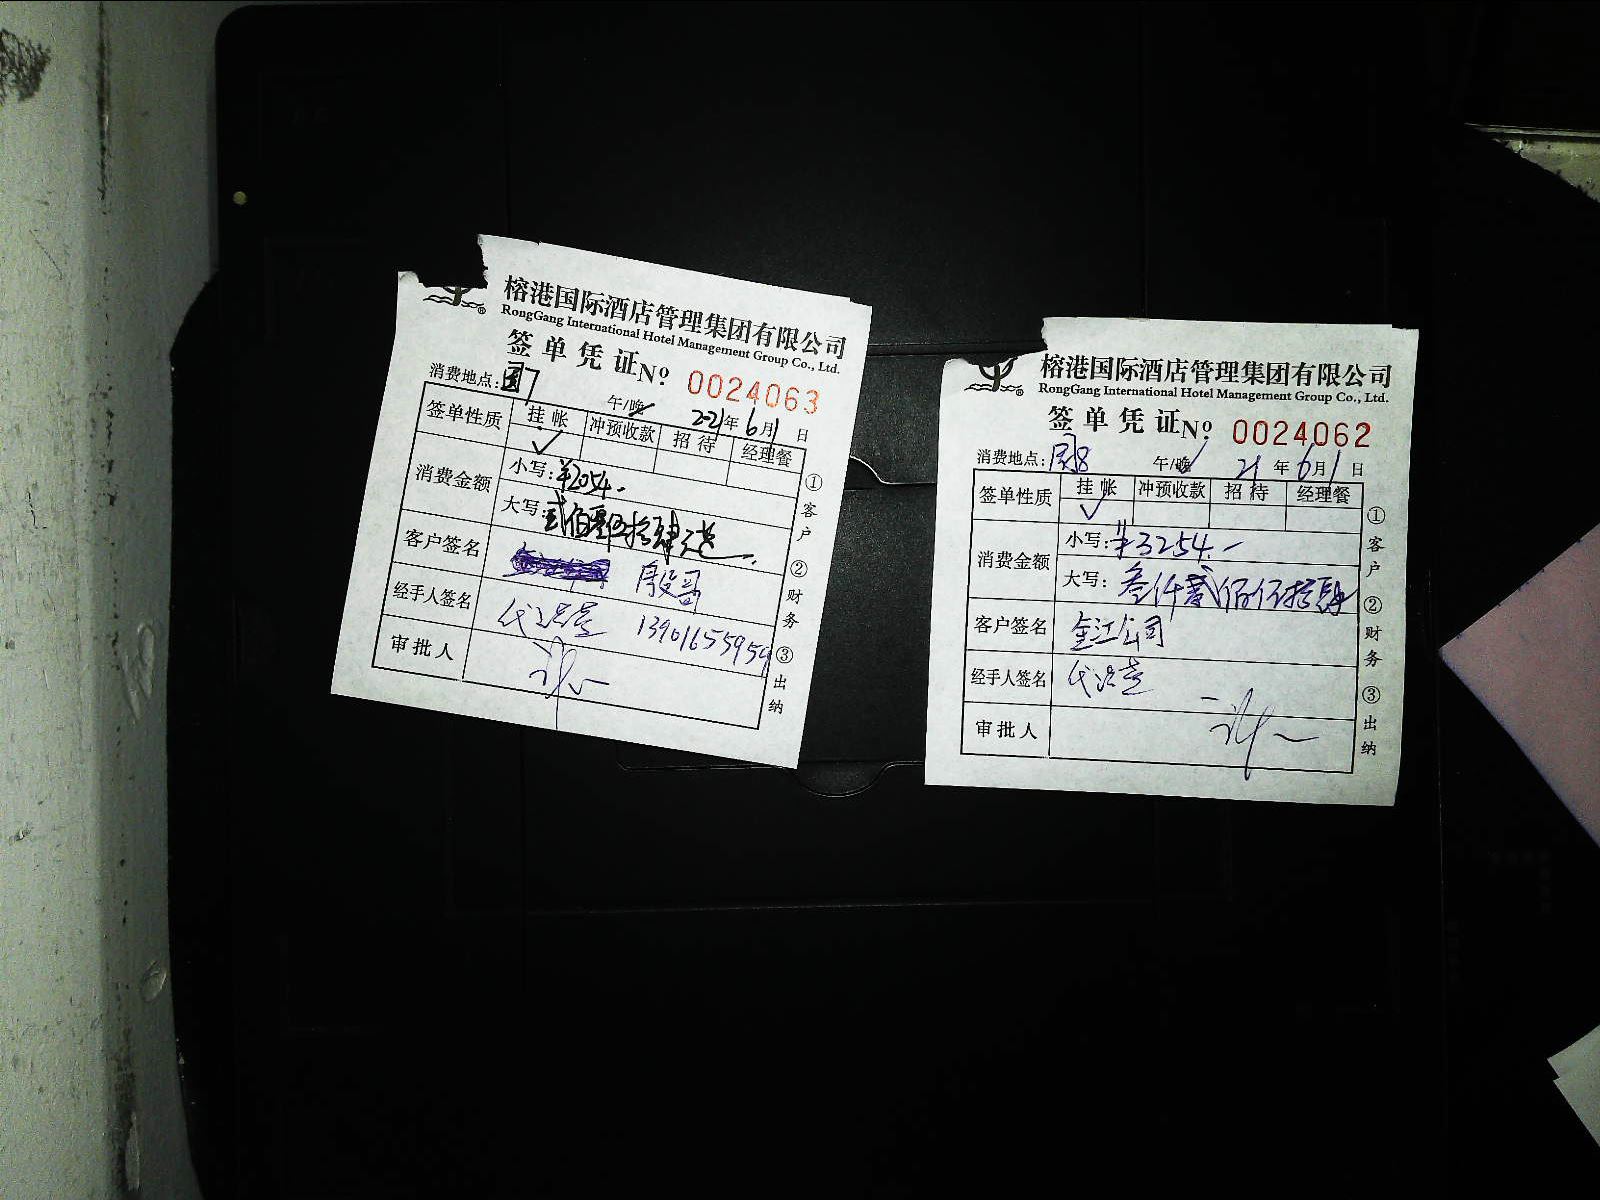 榕港国际酒店管理集团有限公司
RongGang International Hotel Management Group Co., Ltd.
签单凭证 No 0024063
消费地点: 国7 午/晚 221年6月1日
签单性质 挂帐 冲预收款 招待 经理餐
消费金额 小写: ¥2054.
大写:
客户签名 殷哥
经手人签名 13901655959
审批人
① 客户 ② 财务 ③ 出纳
榕港国际酒店管理集团有限公司
RongGang International Hotel Management Group Co., Ltd.
签单凭证 No 0024062
消费地点: 国8 午/晚 21年6月1日
签单性质 挂帐 冲预收款 招待 经理餐
消费金额 小写: ¥3254.-
大写: 叁仟贰佰伍拾肆
客户签名 金江公司
经手人签名
审批人
① 客户 ② 财务 ③ 出纳